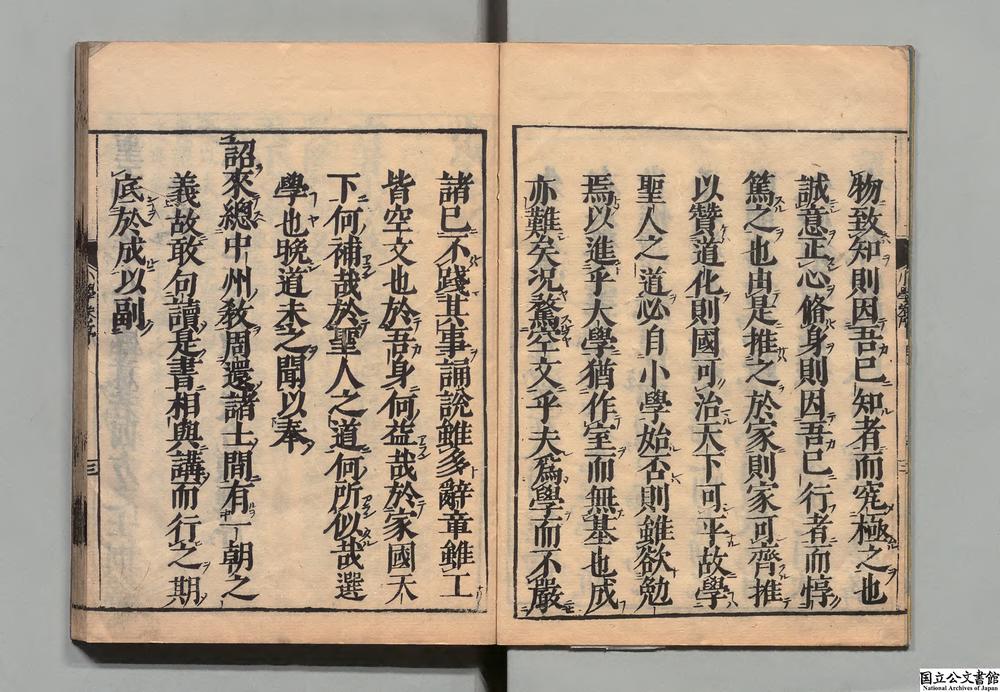 物致知則因吾已知者而究極之也
誠意正心脩身則因吾已行者而惇
篤之也由是推之於家則家可齊推
以贊道化則國可治天下可平故學
聖人之道必自小學始否則雖欲勉
焉以進乎大學猶作室而無基也成
亦難矣况騖空文乎夫爲學而不嚴
諸已不踐其事誦說雖多辭章雖工
皆空文也於吾身何益哉於家國天
下何補哉於聖人之道何所似哉選
學也晚道未之聞以奉
詔來總中州敎周還諸士間有一朝之
義故敢句讀是書相與講而行之期
底於成以副
三
三
国立公文書館
National Archives of Japan